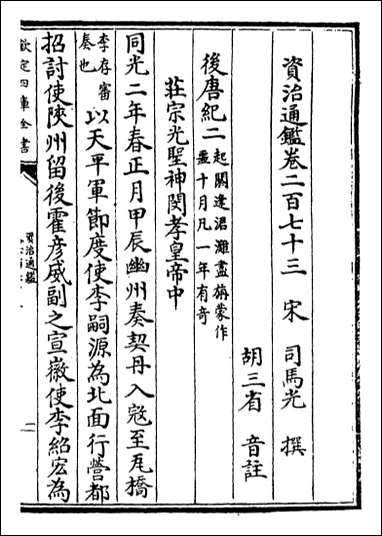 資治通鑑卷二百七十三 宋 司馬光 撰
胡三省 音註
後唐紀二 起閼逢涒灘盡旃蒙作
噩十月凡一年有奇
莊宗光聖神閔孝皇帝中
同光二年春正月甲辰幽州奏契丹入寇至瓦橋
李存審
奏也 以天平軍節度使李嗣源為北面行營都
招討使陜州留後霍彥威副之宣徽使李紹宏為
欽定四庫全書
資治通鑑